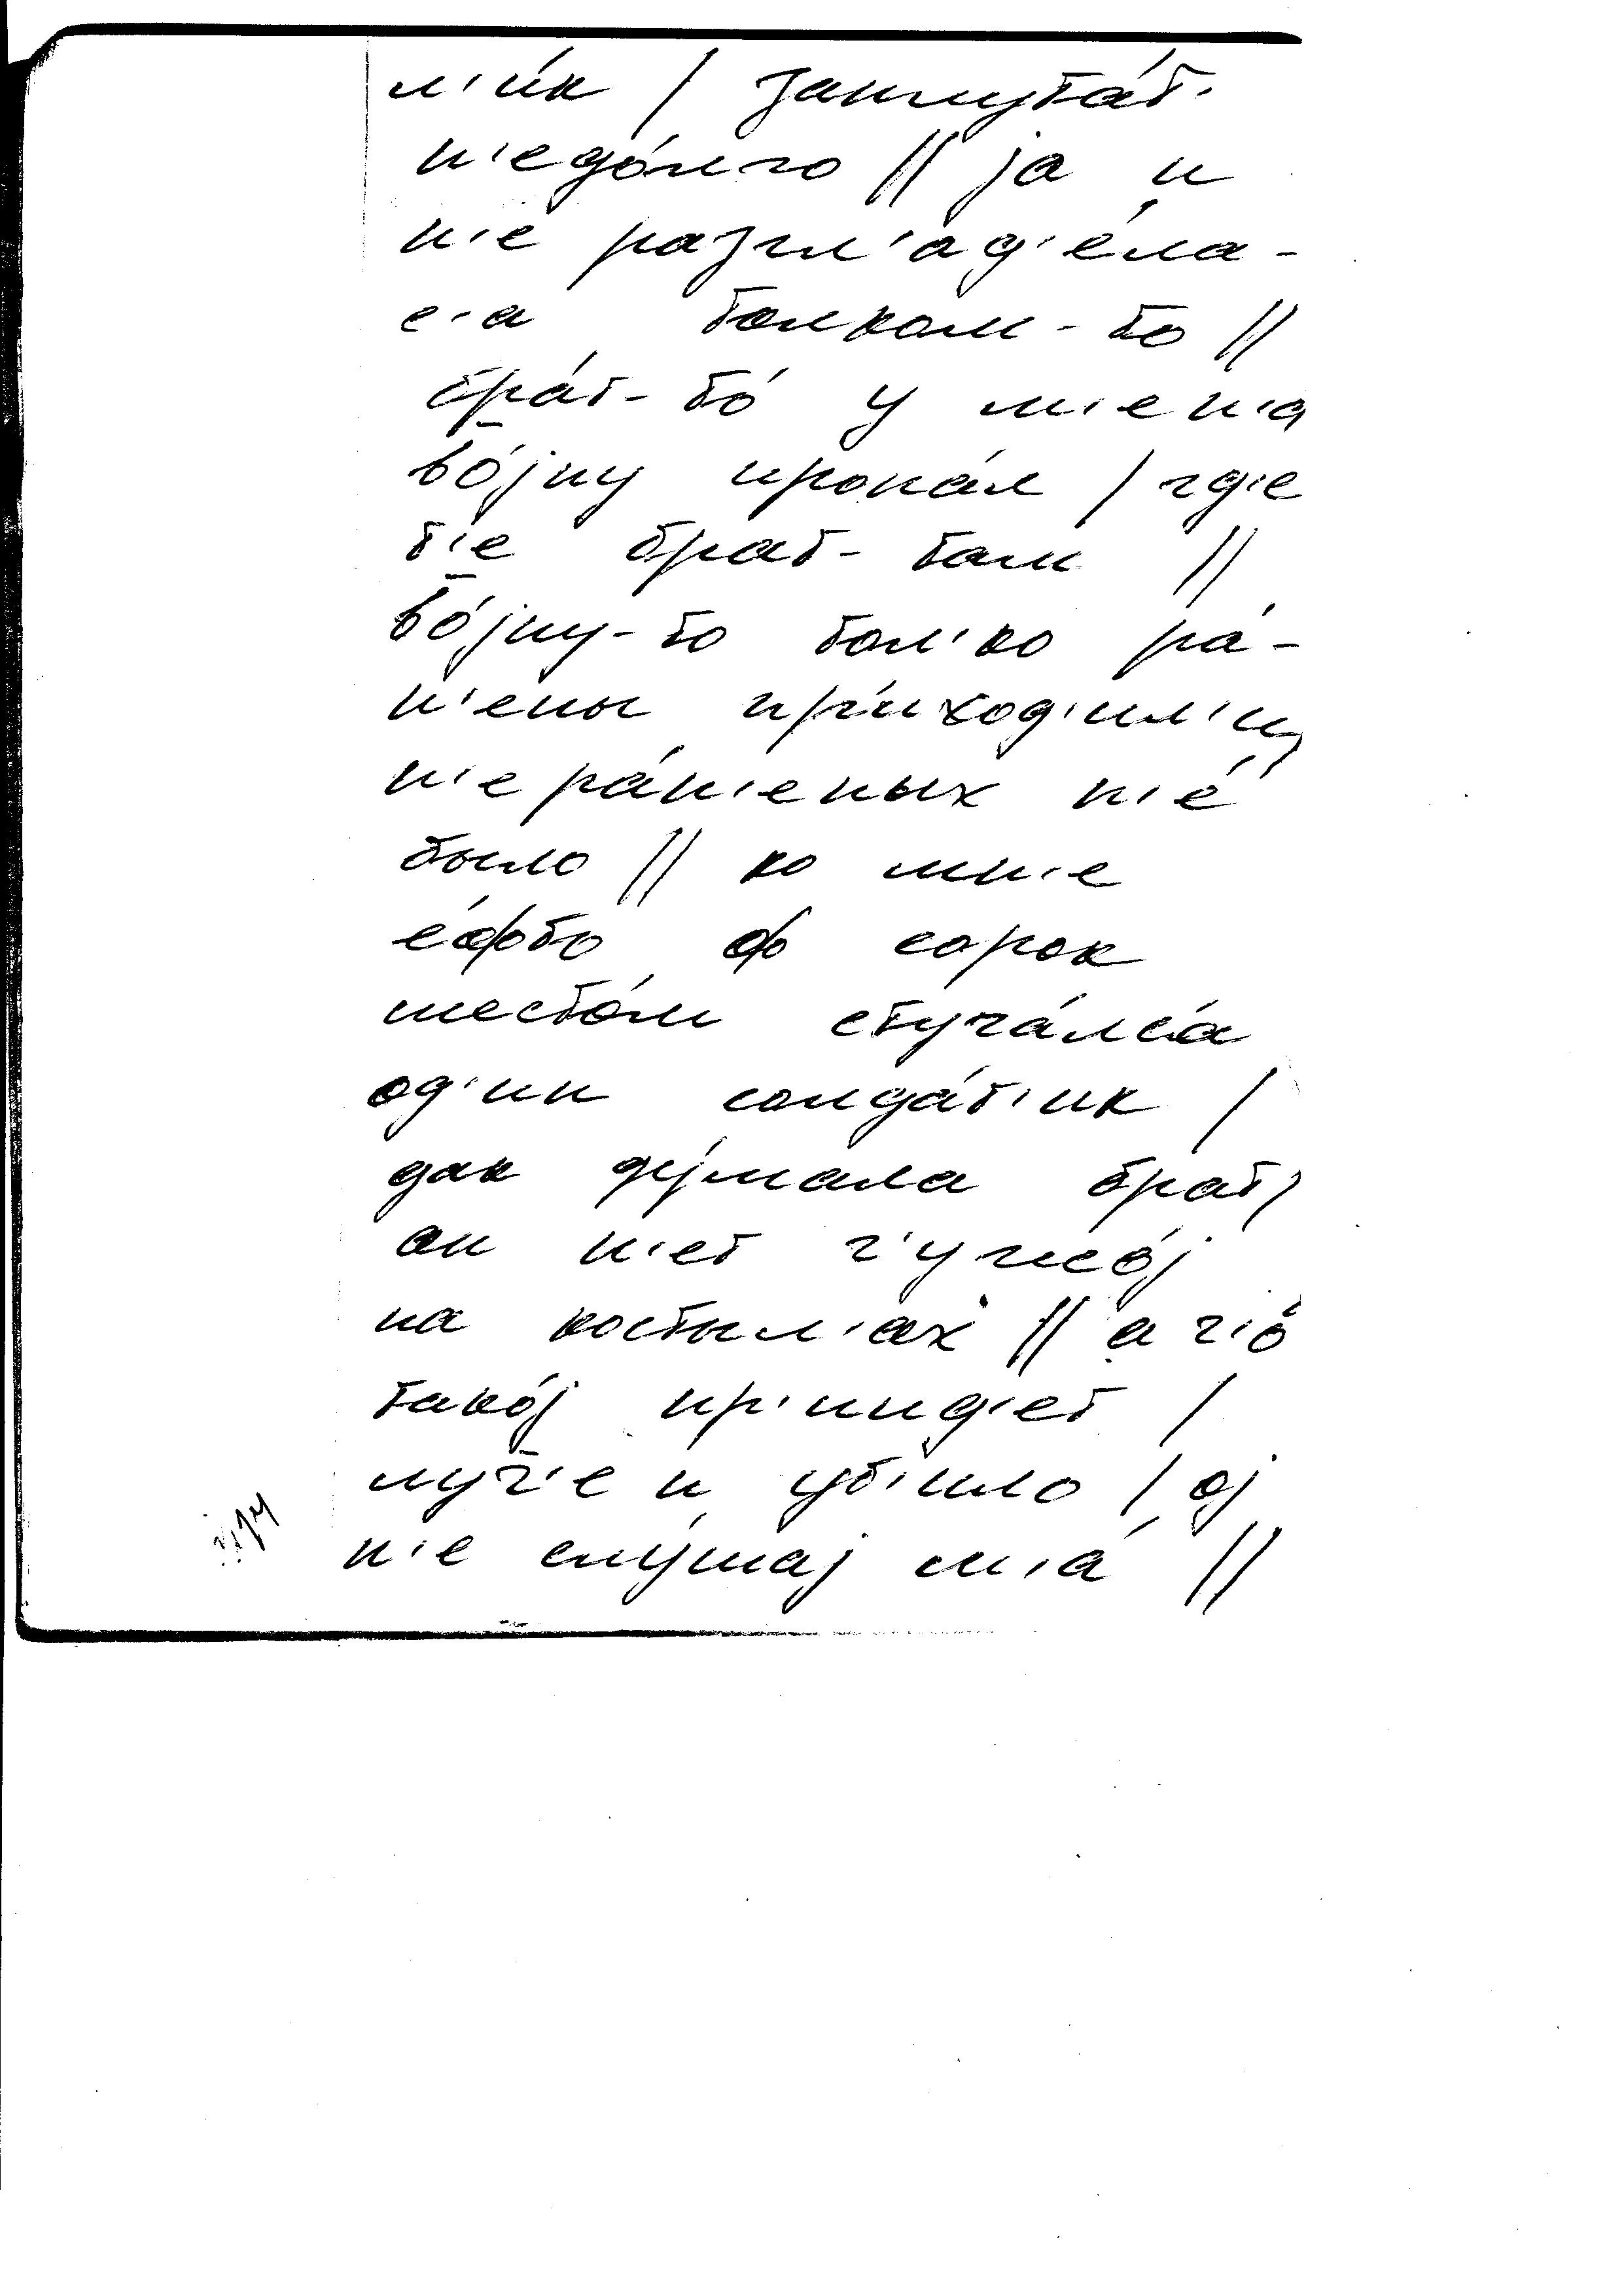 л'и́к / запшута́т'
н'едо́лго // ја и
н'е разгл'ад'е́ла-
с'а толком-то //
бра́т-то́ у м'ен'а
во́јну пропа́л / гд'е
т'е брат-там //
во́јну-то тол'ко ра́-
н'ены пр'иход'ил'и,
н'ера́н'еных н'е́
было // ко мн'е
е́фто ф сорок
шесто́м стуча́лс'а
од'ин солда́т'ик /
дак ду́мала брат,
ан н'ет ч'ужо́ј
на костыл'ах // а ч'о́
тако́ј пр'инд'ет /
луч̄'е и уб'ило / ој
н'е слу́шај м'а́ //